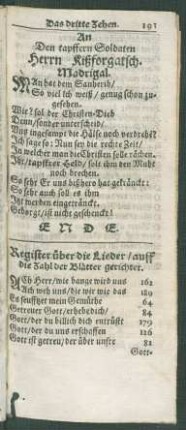 Das dritte Zehen. 191
An
Den tapffern Soldaten
Herrn Kißforgatsch.
Madrigal.
MAn hat dem Sanherib/
So viel ich weiß / genug schon zu-
gesehen.
Wie? sol der Christen-Dieb
Denn / sonder unterscheid/
Uns ingesampt die Hälse noch verdrehē?
Ich sage so: Nun sey die rechte Zeit/
Jn welcher man die Christen solle rächen.
Jhr / tapffrer Held / solt ihm den Muht
noch brechen.
So sehr Er uns bißhero hat gekränckt:
So sehr auch soll es ihm
Jtzt werden eingetränckt.
Geborgt / ist nicht geschenckt!
E N D E.
Register über die Lieder / auff
die Zahl der Blätter gerichtet.
ACh Herr / wie bange wird uns 162
Ach weh uns / die wir wie das 189
Es seuffzet mein Gemüthe 64
Getreuer Gott / erhebe dich / 84
Gott / der du billich dich entrüst 179
Gott / der du uns erschaffen 126
Gott ist getreu / der über unsre 81
Gott-